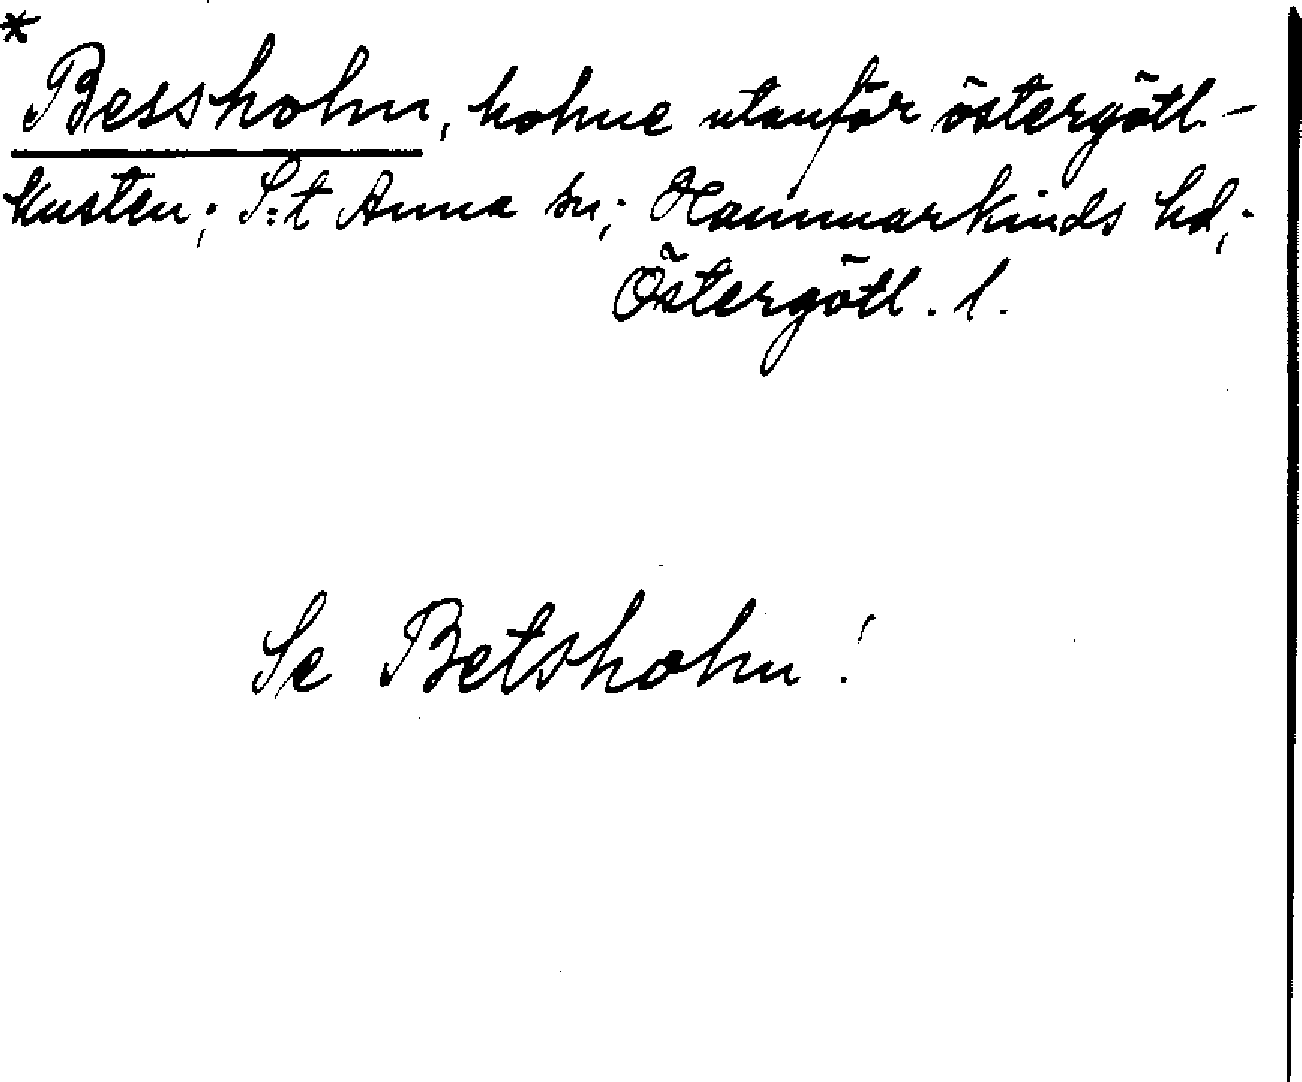 *
Bessholm, holme utanför östergötl-
kusten; S:t Anna sn; Hammarkinds hd;
Östergötl. l.
Se Betsholm!